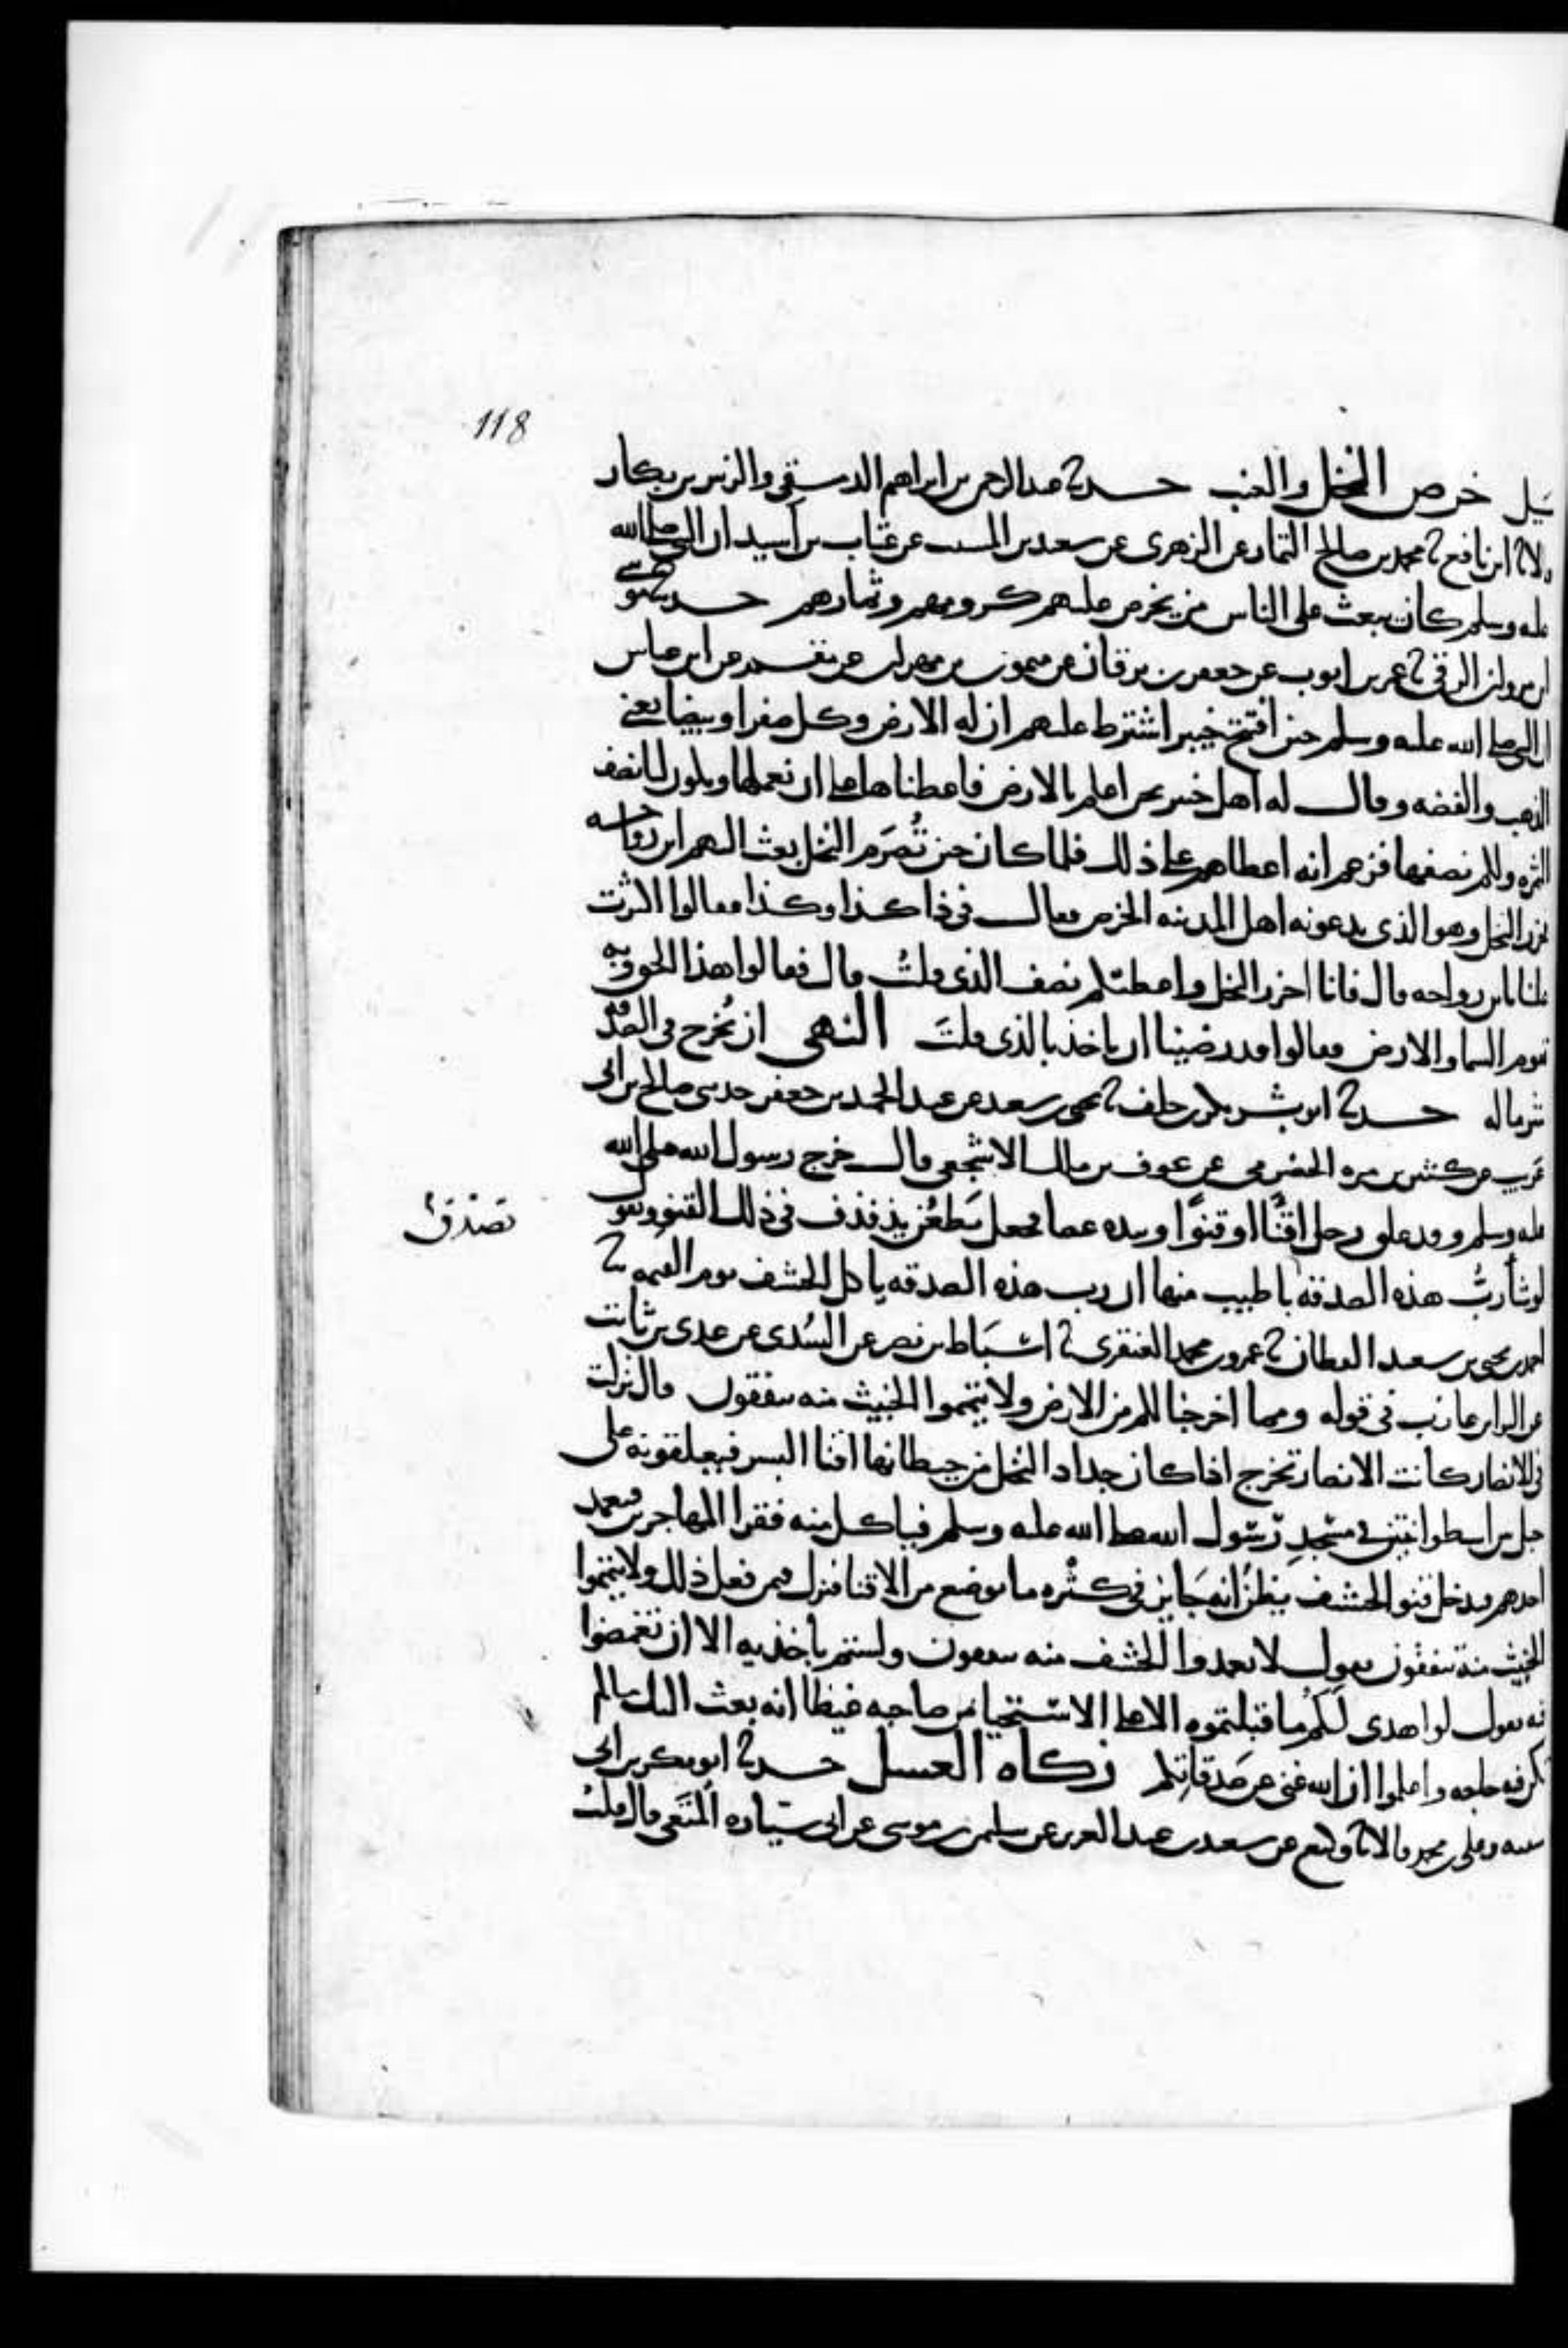 118
سَيل خرص النخل والعنب حدثنا عبد الرحمن بن ابراهيم الدمشقي والزبير بن بكار
قالا ثنا ابن نافع ثنا محمد بن صالح التمار عن الزهري عن سعيد بن المسيب عن عتاب بن اسيد ان النبي صلى الله
عليه وسلم كان يبعث على الناس من يخرص عليهم كرومهم وثمارهم حدثنا موسى
ابن مروان الرقي ثنا عمر بن ايوب عن جعفر بن برقان عن ميمون بن مهران عن مقسم عن ابن عباس
ان النبي صلى الله عليه وسلم حين افتتح خيبر اشترط عليهم ان له الارض وكل صفرا وبيضا يعني
الذهب والفضه وقال له اهل خيبر نحن اعلم بالارض فاعطناها على ان نعملها ويكون لنا نصف
الثمره ولكم نصفها فزعم انه اعطاهم على ذلك فلما كان حين تُصرَم النخل بعث اليهم ابن رواحه
فحزر النخل وهو الذي يدعونه اهل المدينه الخرص فقال في ذا كذا وكذا فقالوا اكثرت
علينا يابن رواحه قال فانا احزر النخل واعطيكم نصف الذي قلتُ قال فقالوا هذا الحق وبه
تقوم السما والارض فقالوا قد رضينا ان ناخذ بالذي قلتَ النهي ان يُخرج في الصدقه
شر ماله حدثنا ابو بشر بكر بن خلف ثنا يحيى بن سعيد عن عبد الحميد بن جعفر حدثني صالح بن ابي
عَريب عن كثير بن مره الحضرمي عن عوف بن مالك الاشجعي قال خرج رسول الله صلى الله
عليه وسلم وقد علق رجل اقنًا او قنوًا وبيده عصا فجعل يَطعُن يدفدف في ذلك القنو ويقول
لو شا ربُّ هذه الصدقه باطيب منها ان رب هذه الصدقه ياكل الحشف يوم القيمه ثنا
تصدق
احمد بن محمد بن يحيى بن سعيد القطان ثنا عمرو بن محمد العنقزي ثنا اسبَاط بن نصر عن السُدي عن عدي بن ثابت
عن البرا بن عازب في قوله ومما اخرجنا لكم من الارض ولا تيمموا الخبيث منه تنفقون قال نزلت
في الانصار كانت الانصار تخرج اذا كان جداد النخل من حيطانها اقنا البسر فيعلقونه على
حبل بين اسطوانتين في مسجدِ رسول الله صلى الله عليه وسلم فياكل منه فقرا المهاجرين فيعمد
احدهم فيدخل قنو الحشف يظن انه جَايز في كثره ما يوضع من الاقنا فنزل فيمن فعل ذلك ولا تيمموا
الخبيث منه تنفقون يقول لا تعمدوا للحشف منه تنفقون ولستم باخذيه الا ان تغمضوا
فيه يقول لو اهدي لكُم ما قبلتموه الا على الاستحيا من صاحبه غيظا انه بعث اليك ما لم
يكن فيه حاجه واعلموا ان الله غني عن صَدقاتِكم زكاه العسل حدثنا ابو بكر بن ابي
شيبه وعلي بن محمد قالا ثنا وكيع عن سعيد بن عبد العزيز عن سليمن بن موسى عن ابي سيّاره المُتَعي قال قلتُ